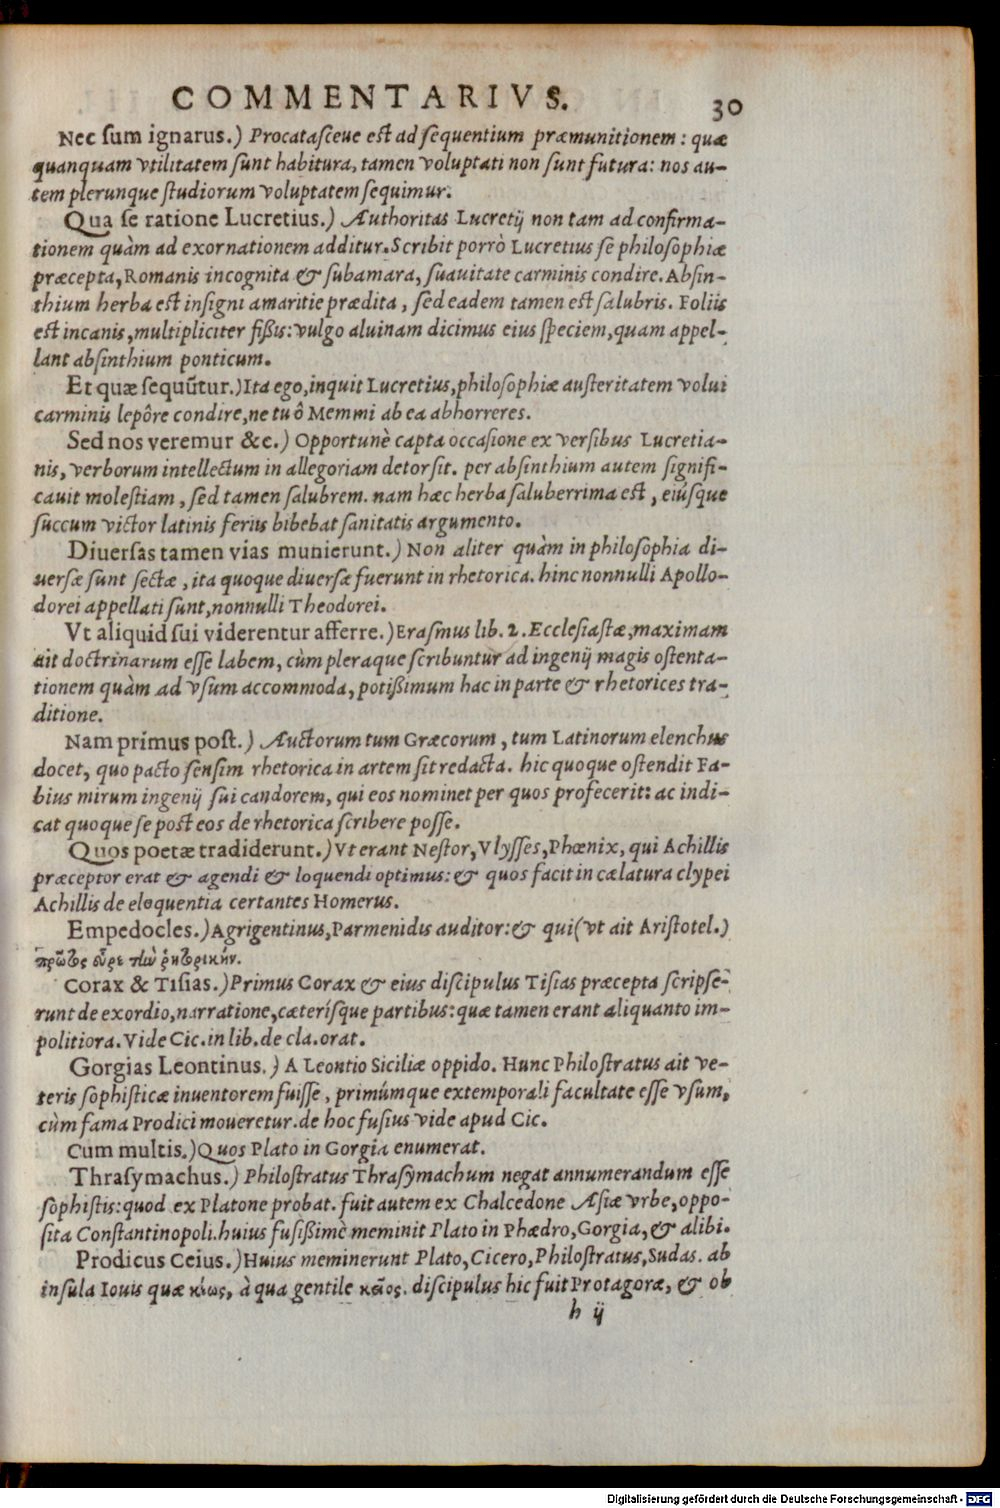 COMMENTARIVS. 30
Nec sum ignarus.) Procatasceue est ad sequentium præmunitionem: quæ
quanquam vtilitatem sunt habitura, tamen voluptati non sunt futura: nos au-
tem plerunque studiorum voluptatem sequimur.
Qua se ratione Lucretius.) Authoritas Lucretij non tam ad confirma-
tionem quàm ad exornationem additur. Scribit porrò Lucretius se philosophiæ
præcepta, Romanis incognita & subamara, suauitate carminis condire. Absin-
thium herba est insigni amaritie prædita, sed eadem tamen est salubris. Foliis
est incanis, multipliciter fißis: vulgo aluinam dicimus eius speciem, quam appel-
lant absinthium ponticum.
Et quæ sequũtur.) Ita ego, inquit Lucretius, philosophiæ austeritatem volui
carminis lepôre condire, ne tu ô Memmi ab ea abhorreres.
Sed nos veremur &c.) Opportunè capta occasione ex versibus Lucretia-
nis, verborum intellectum in allegoriam detorsit. per absinthium autem signifi-
cauit molestiam, sed tamen salubrem. nam hæc herba saluberrima est, eiúsque
succum victor latinis feriis bibebat sanitatis argumento.
Diuersas tamen vias munierunt.) Non aliter quàm in philosophia di-
uersæ sunt sectæ, ita quoque diuersæ fuerunt in rhetorica. hinc nonnulli Apollo-
dorei appellati sunt, nonnulli Theodorei.
Vt aliquid sui viderentur afferre.) Erasmus lib. 2. Ecclesiastæ, maximam
ait doctrinarum esse labem, cùm pleraque scribuntur ad ingenij magis ostenta-
tionem quàm ad vsum accommoda, potißimum hac in parte & rhetorices tra-
ditione.
Nam prímus post.) Auctorum tum Græcorum, tum Latinorum elenchus
docet, quo pacto sensim rhetorica in artem sit redacta. hic quoque ostendit Fa-
bius mirum ingenij sui candorem, qui eos nominet per quos profecerit: ac indi-
cat quoque se post eos de rhetorica scribere posse.
Quos poetæ tradiderunt.) Vt erant Nestor, Vlysses, Phœnix, qui Achillis
præceptor erat & agendi & loquendi optimus: & quos facit in cælatura clypei
Achillis de eloquentia certantes Homerus.
Empedocles.) Agrigentinus, Parmenidis auditor: & qui (vt ait Aristotel.)
πρῶτος εὗρε τὴν ῥητορικήν.
Corax & Tisias.) Primus Corax & eius discipulus Tisias præcepta scripse-
runt de exordio, narratione, cæterísque partibus: quæ tamen erant aliquanto im-
politiora. Vide Cic. in lib. de cla. orat.
Gorgias Leontinus.) A Leontio Siciliæ oppido. Hunc Philostratus ait ve-
teris sophisticæ inuentorem fuisse, primúmque extemporali facultate esse vsum,
cùm fama Prodici moueretur. de hoc fusius vide apud Cic.
Cum multis.) Quos Plato in Gorgia enumerat.
Thrasymachus.) Philostratus Thrasymachum negat annumerandum esse
sophistis: quod ex Platone probat. fuit autem ex Chalcedone Asiæ vrbe, oppo-
sita Constantinopoli. huius fusißimè meminit Plato in Phædro, Gorgia, & alibi.
Prodicus Ceius.) Huius meminerunt Plato, Cicero, Philostratus, Sudas. ab
insula Iouis quæ κίως, à qua gentile κεῖος. discipulus hic fuit Protagoræ, & ob
h ij
Digitalisierung gefördert durch die Deutsche Forschungsgemeinschaft - DFG